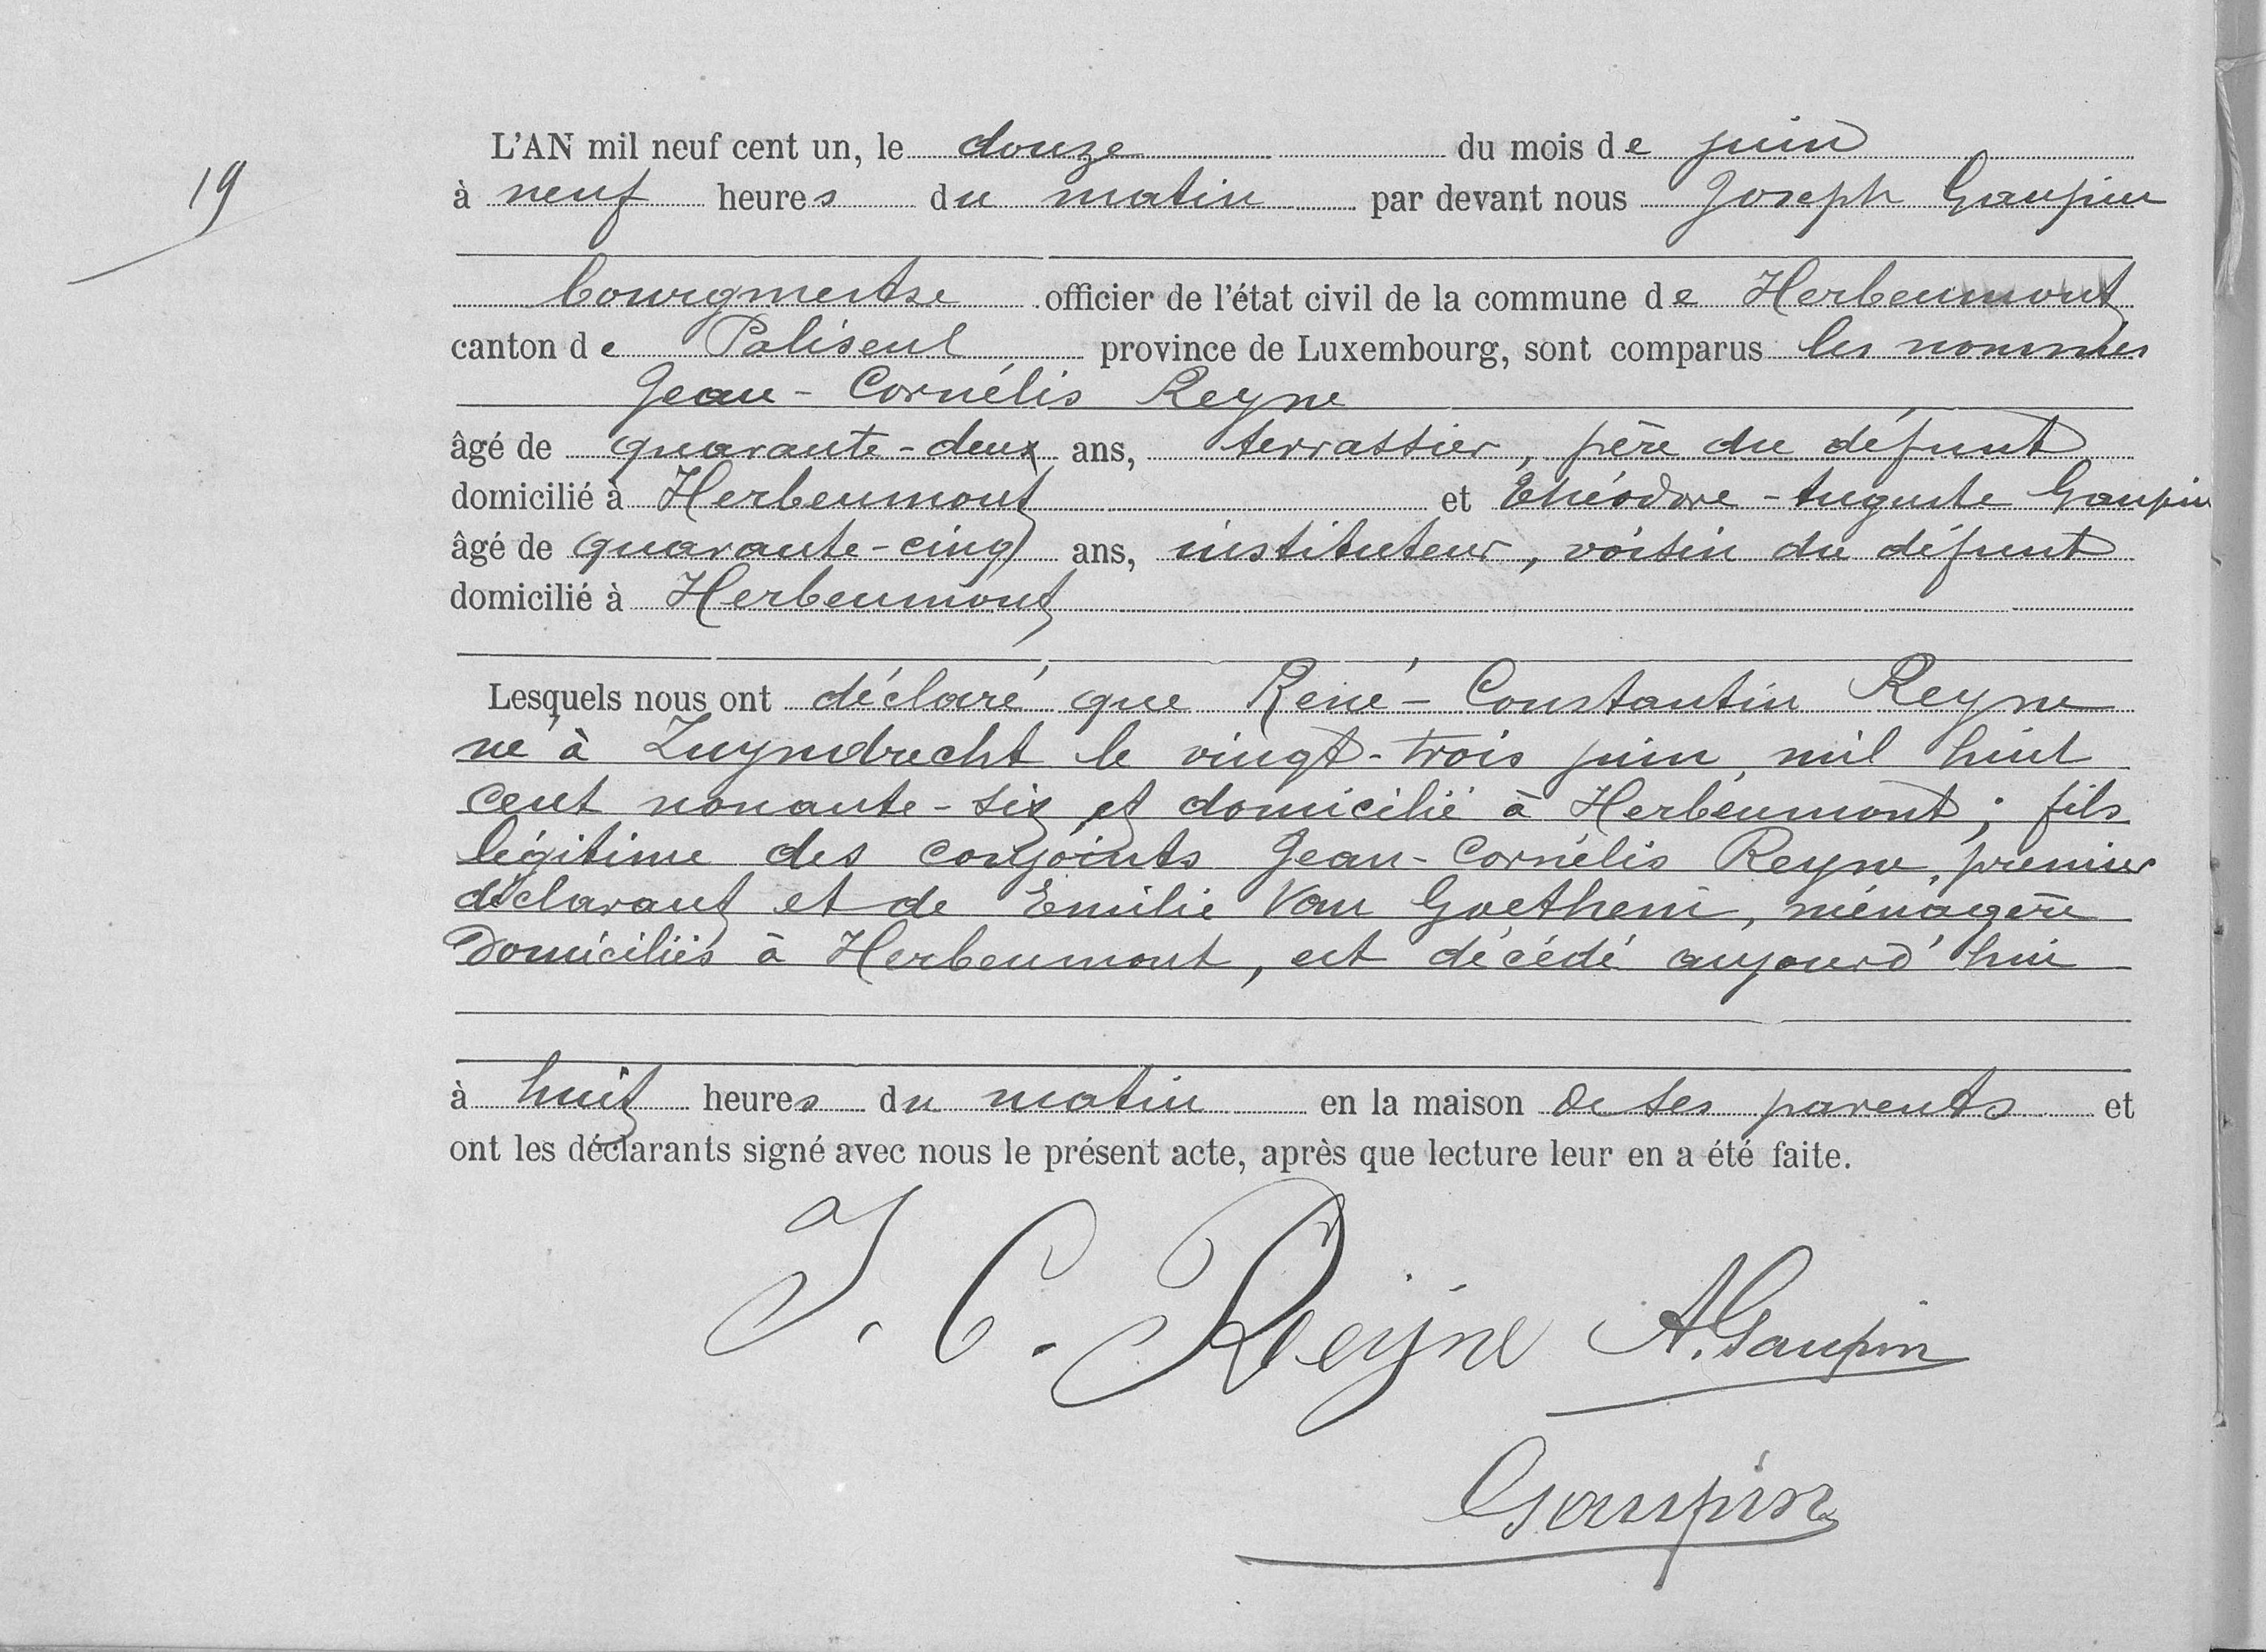 19
L'AN mil neuf cent un, le douze du mois de juin
à neuf heures du matin par devant nous Joseph Gaupin
bourgmestre officier de l'état civil de la commune de Herbeumont
canton de Paliseul province de Luxembourg, sont comparus les nommés
Jean-Cornélis Reyne
âgé de quarante-deux ans, terrassier, père du défunt
domicilié à Herbeumont et Théodore-Auguste Gaupin
âgé de quarante-cinq ans, instituteur, voisin du défunt
domicilié à Herbeumont
Lesquels nous ont déclaré que René-Constantin Reyne
né à Zuyndrecht le vingt-trois juin mil huit
cent nonante-six et domicilié à Herbeumont; fils
légitime des conjoints Jean-Cornélis Reyne, premier
déclarant et de Emilie Van Goethem, ménagère
domiciliés à Herbeumont, est décédé aujourd'hui
à huit heures du matin en la maison de ses parents et
ont les déclarants signé avec nous le présent acte, après que lecture leur en a été faite.
J. C. Reijne A. Gaupin
Gaupin